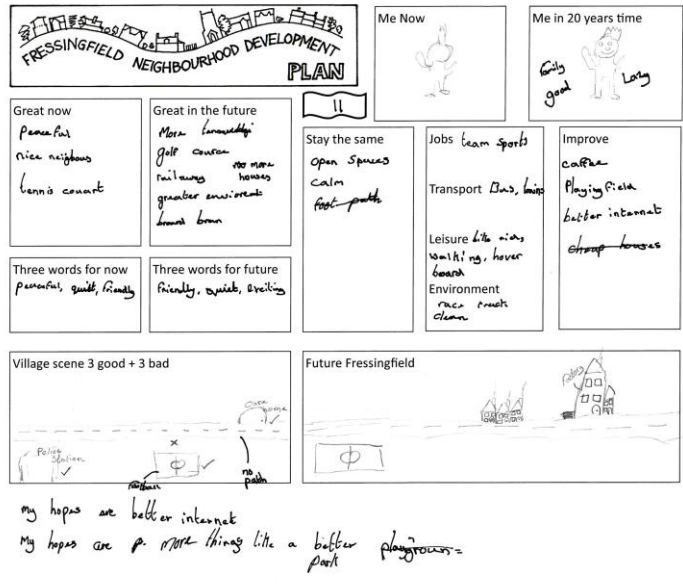 FRESSINGFIELD NEIGHBOURHOOD DEVELOPMENT
PLAN
Me Now
Me in 20 years time
family
good
Lazy
11
Great now
Peaceful
nice neighbous
tennis couart
Great in the future
More
golf cource
railaway
no more
houses
greater
Stay the same
open Spaces
calm
foot path
Jobs team sports
Transport Bus, trains
Leisure
walking, hover
board
Environment
race track
clean
Improve
caffee
Playing field
better internet
cheap houses
Three words for now
peaceful, quiet, friendly
Three words for future
friendly, quiet, exciting
Village scene 3 good + 3 bad
Care
home
Police
Station
no
path
Future Fressingfield
my hopes are better internet
My hopes are p. more things like a better playgroun
park